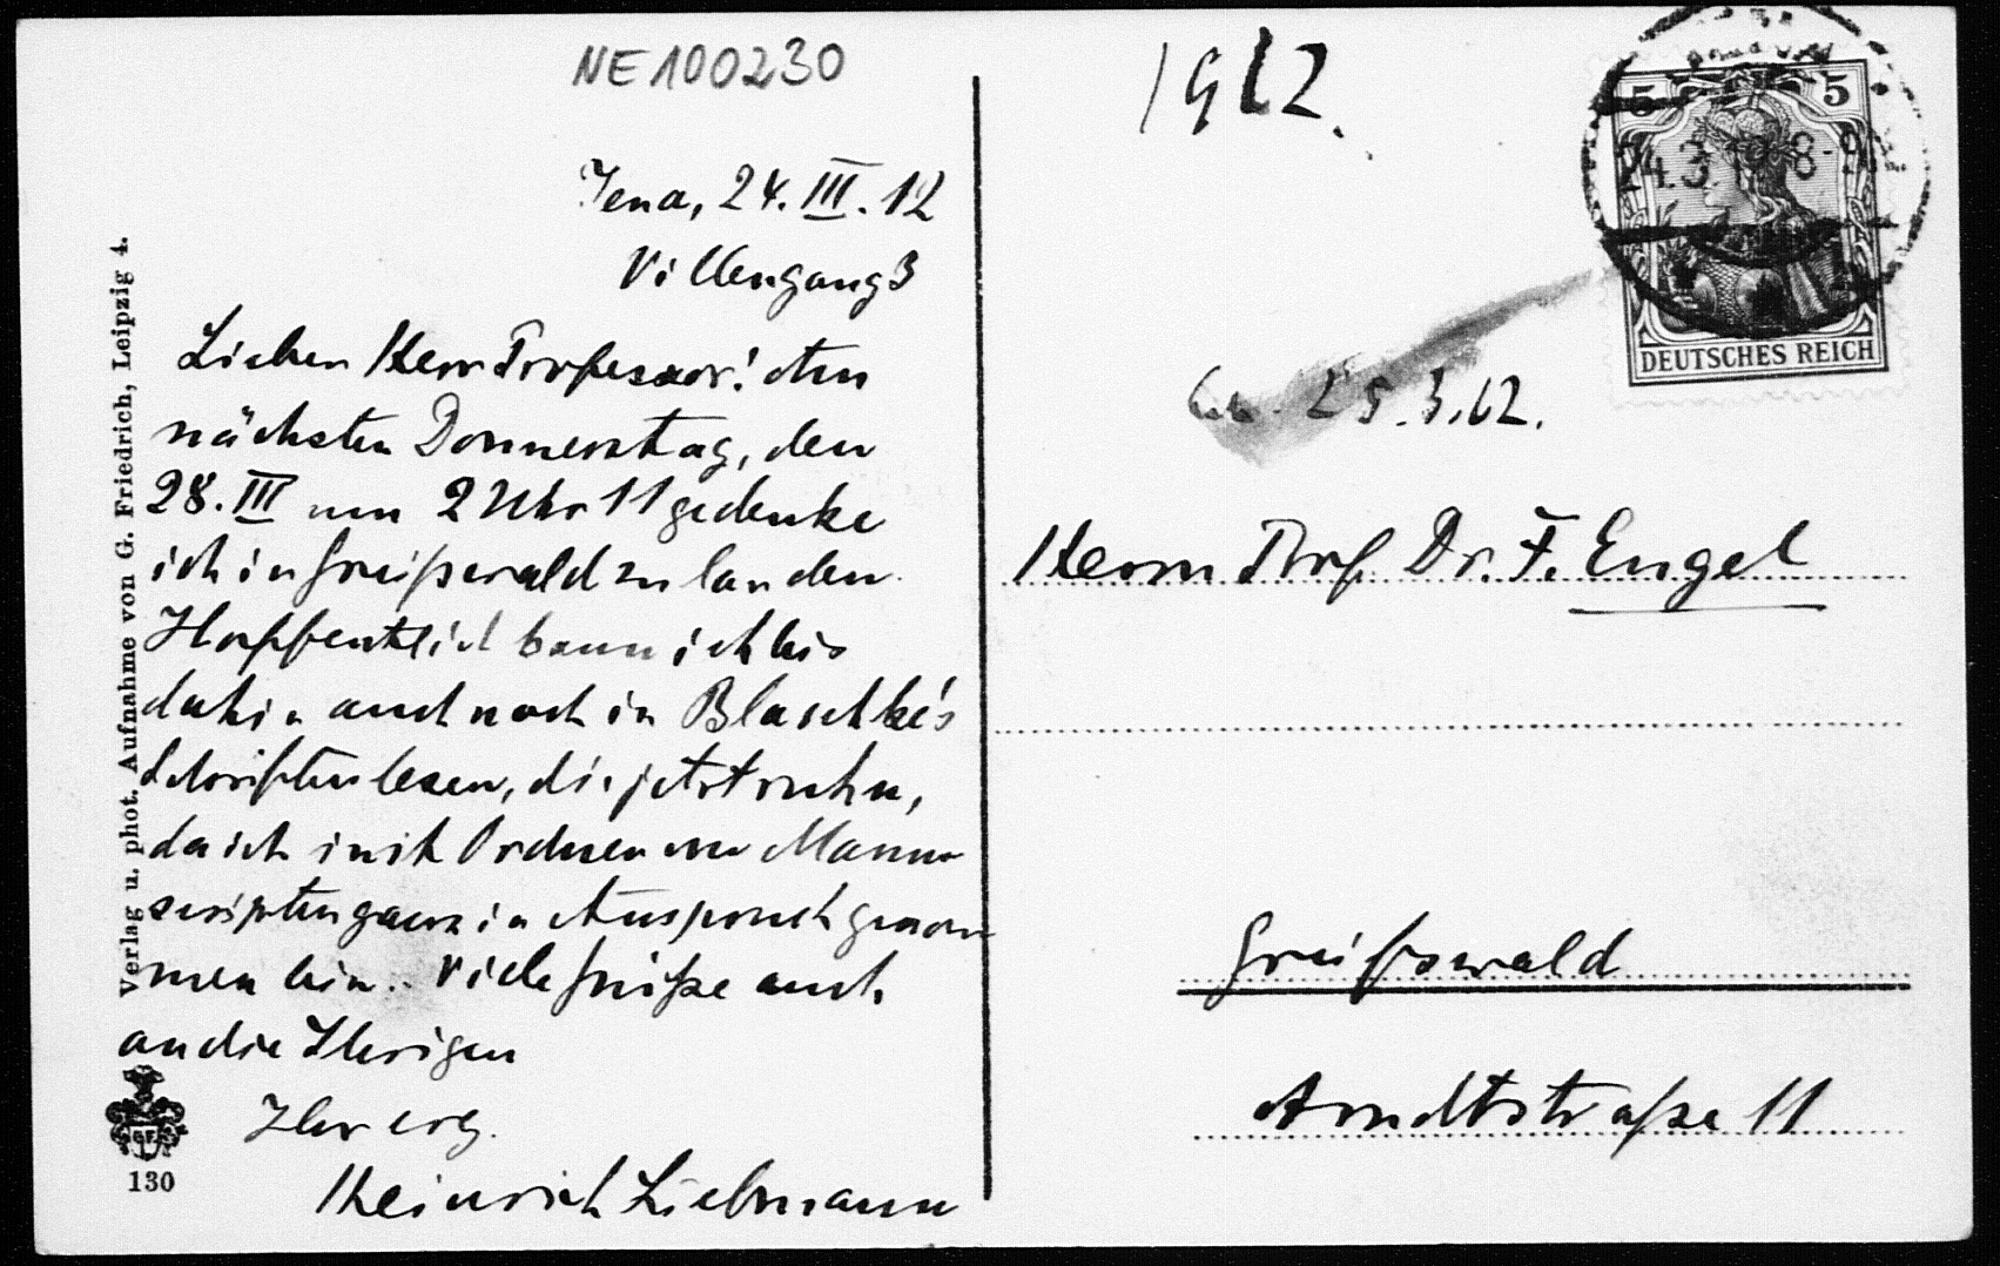 NE100230
Jena, 24. III. 12
Villengang 3
Lieber Herr Professor! Am
nächsten Donnerstag, den
28. III um 2 Uhr 11 gedenke
ich in Greifswald zu landen.
Hoffentlich kann ich bis
dahin auch noch in Blaschke's
Schriften lesen, die jetzt ruhn,
da ich mit Ordnen von Manu-
scripten ganz in Anspruch genom
men bin. Viele Grüße auch
an die Ihrigen
Ihr erg.
Heinrich Liebmann
Verlag u. phot. Aufnahme von G. Friedrich, Leipzig 4.
G.F.
130
1912.
5 5
24.3 12 8-9
DEUTSCHES REICH
25.3.12.
Herrn Prof Dr. F. Engel
Greifswald
Arndtstraße 11